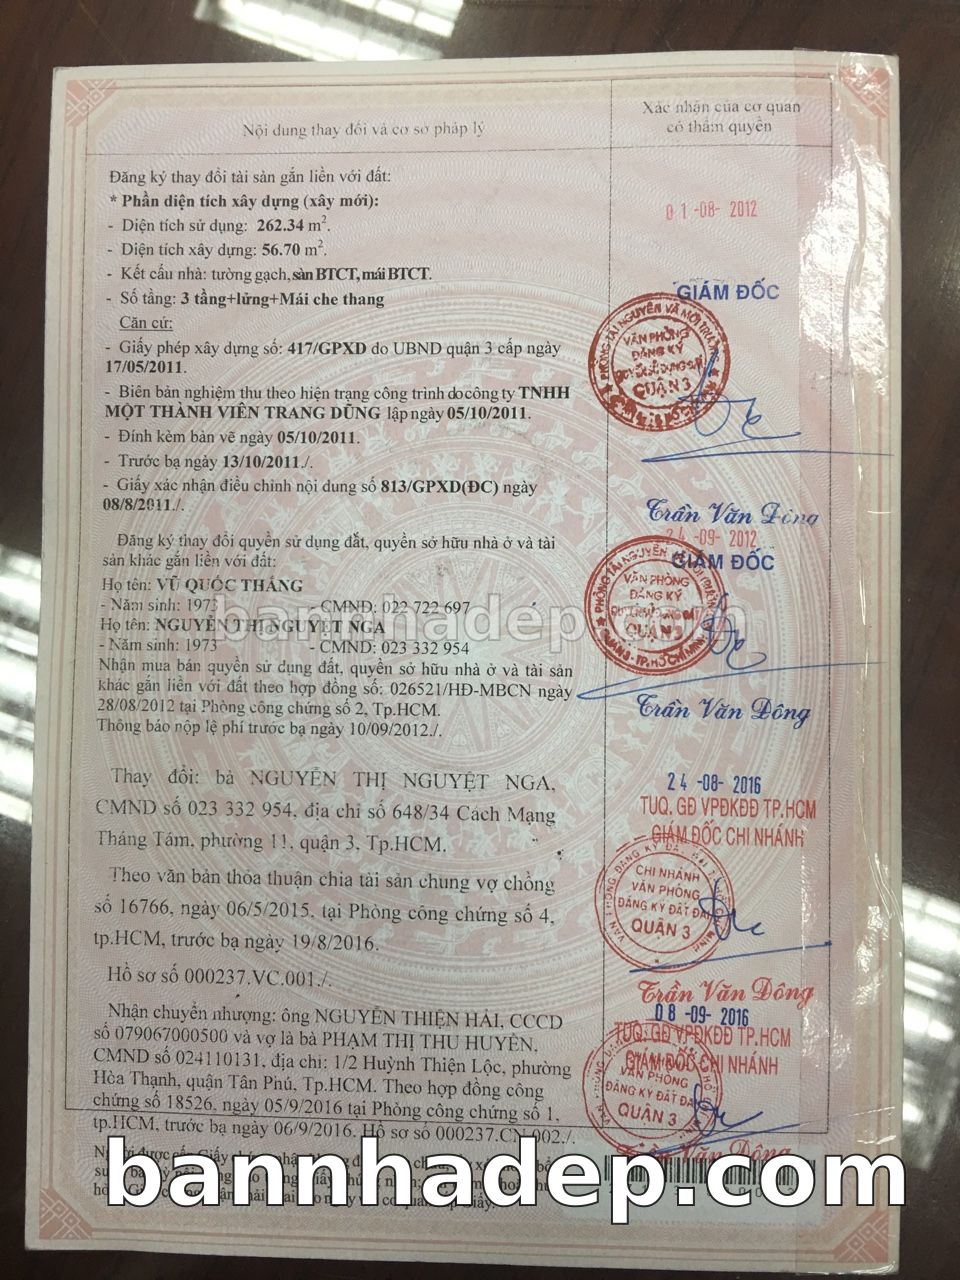 Nội dung thay đổi và cơ sở pháp lý
Xác nhận của cơ quan
có thẩm quyền
Đăng ký thay đổi tài sản gắn liền với đất:
* Phần diện tích xây dựng (xây mới):
- Diện tích sử dụng: 262.34 m².
- Diện tích xây dựng: 56.70 m².
- Kết cấu nhà: tường gạch, sàn BTCT, mái BTCT.
- Số tầng: 3 tầng+lửng+Mái che thang
Căn cứ:
- Giấy phép xây dựng số: 417/GPXD do UBND quận 3 cấp ngày
17/05/2011.
- Biên bản nghiệm thu theo hiện trạng công trình do công ty TNHH
MỘT THÀNH VIÊN TRANG DŨNG lập ngày 05/10/2011.
- Đính kèm bản vẽ ngày 05/10/2011.
- Trước bạ ngày 13/10/2011./.
- Giấy xác nhận điều chỉnh nội dung số 813/GPXD(ĐC) ngày
08/8/2011./.
01-08-2012
GIÁM ĐỐC
PHÒNG TÀI NGUYÊN VÀ MÔI TRƯỜNG
VĂN PHÒNG
ĐĂNG KÝ
QUYỀN SỬ DỤNG ĐẤT
QUẬN 3
Trần Văn Dông
Đăng ký thay đổi quyền sử dụng đất, quyền sở hữu nhà ở và tài
sản khác gắn liền với đất:
Họ tên: VŨ QUỐC THẮNG
- Năm sinh: 1973 - CMND: 022 722 697
Họ tên: NGUYỄN THỊ NGUYỆT NGA
- Năm sinh: 1973 - CMND: 023 332 954
Nhận mua bán quyền sử dụng đất, quyền sở hữu nhà ở và tài sản
khác gắn liền với đất theo hợp đồng số: 026521/HĐ-MBCN ngày
28/08/2012 tại Phòng công chứng số 2, Tp.HCM.
Thông báo nộp lệ phí trước bạ ngày 10/09/2012./.
24-09-2012
GIÁM ĐỐC
VĂN PHÒNG
ĐĂNG KÝ
QUYỀN SỬ DỤNG ĐẤT
QUẬN 3
Trần Văn Dông
bannhadep.com
Thay đổi: bà NGUYỄN THỊ NGUYỆT NGA,
CMND số 023 332 954, địa chỉ số 648/34 Cách Mạng
Tháng Tám, phường 11, quận 3, Tp.HCM.
Theo văn bản thỏa thuận chia tài sản chung vợ chồng
số 16766, ngày 06/5/2015, tại Phòng công chứng số 4,
tp.HCM, trước bạ ngày 19/8/2016.
Hồ sơ số 000237.VC.001./.
24-08-2016
TUQ. GĐ VPĐKĐĐ TP.HCM
GIÁM ĐỐC CHI NHÁNH
CHI NHÁNH
VĂN PHÒNG
ĐĂNG KÝ ĐẤT ĐAI
QUẬN 3
Trần Văn Dông
Nhận chuyển nhượng: ông NGUYỄN THIỆN HẢI, CCCD
số 079067000500 và vợ là bà PHẠM THỊ THU HUYỀN,
CMND số 024110131, địa chỉ: 1/2 Huỳnh Thiện Lộc, phường
Hòa Thạnh, quận Tân Phú, Tp.HCM. Theo hợp đồng công
chứng số 18526, ngày 05/9/2016 tại Phòng công chứng số 1,
tp.HCM, trước bạ ngày 06/9/2016. Hồ sơ số 000237.CN.002./.
08-09-2016
TUQ. GĐ VPĐKĐĐ TP.HCM
GIÁM ĐỐC CHI NHÁNH
VĂN PHÒNG
ĐĂNG KÝ ĐẤT ĐAI
QUẬN 3
Trần Văn Dông
bannhadep.com